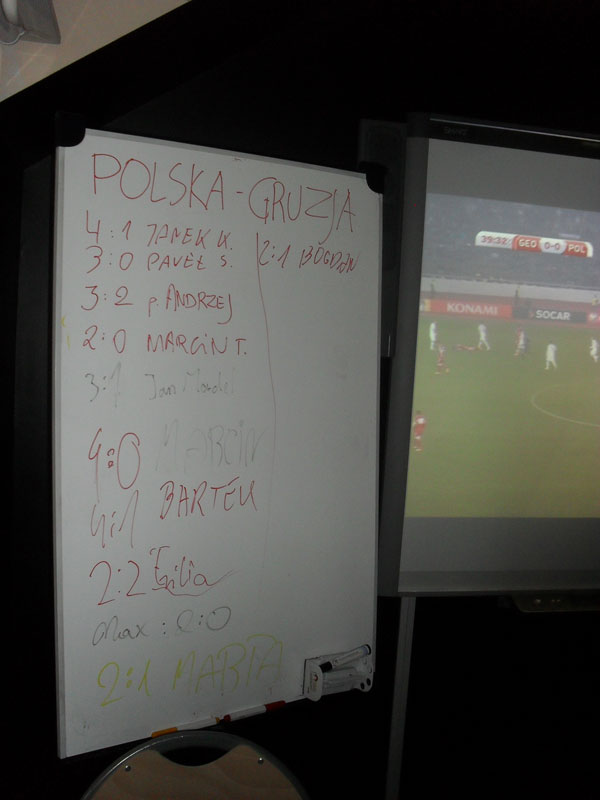 POLSKA - GRUZJA
4:1 JANEK K.
3:0 PAVEŁ S.
3:2 p. ANDRZEJ
2:0 MARCIN T.
3:1 Jan
4:0 MARCIN
4:1 BARTEK
2:2 Emilia
Max : 2:0
2:1 MARTA
2:1 BOGDAN
SMART
39:32 GEO 0-0 POL
KONAMI SOCAR